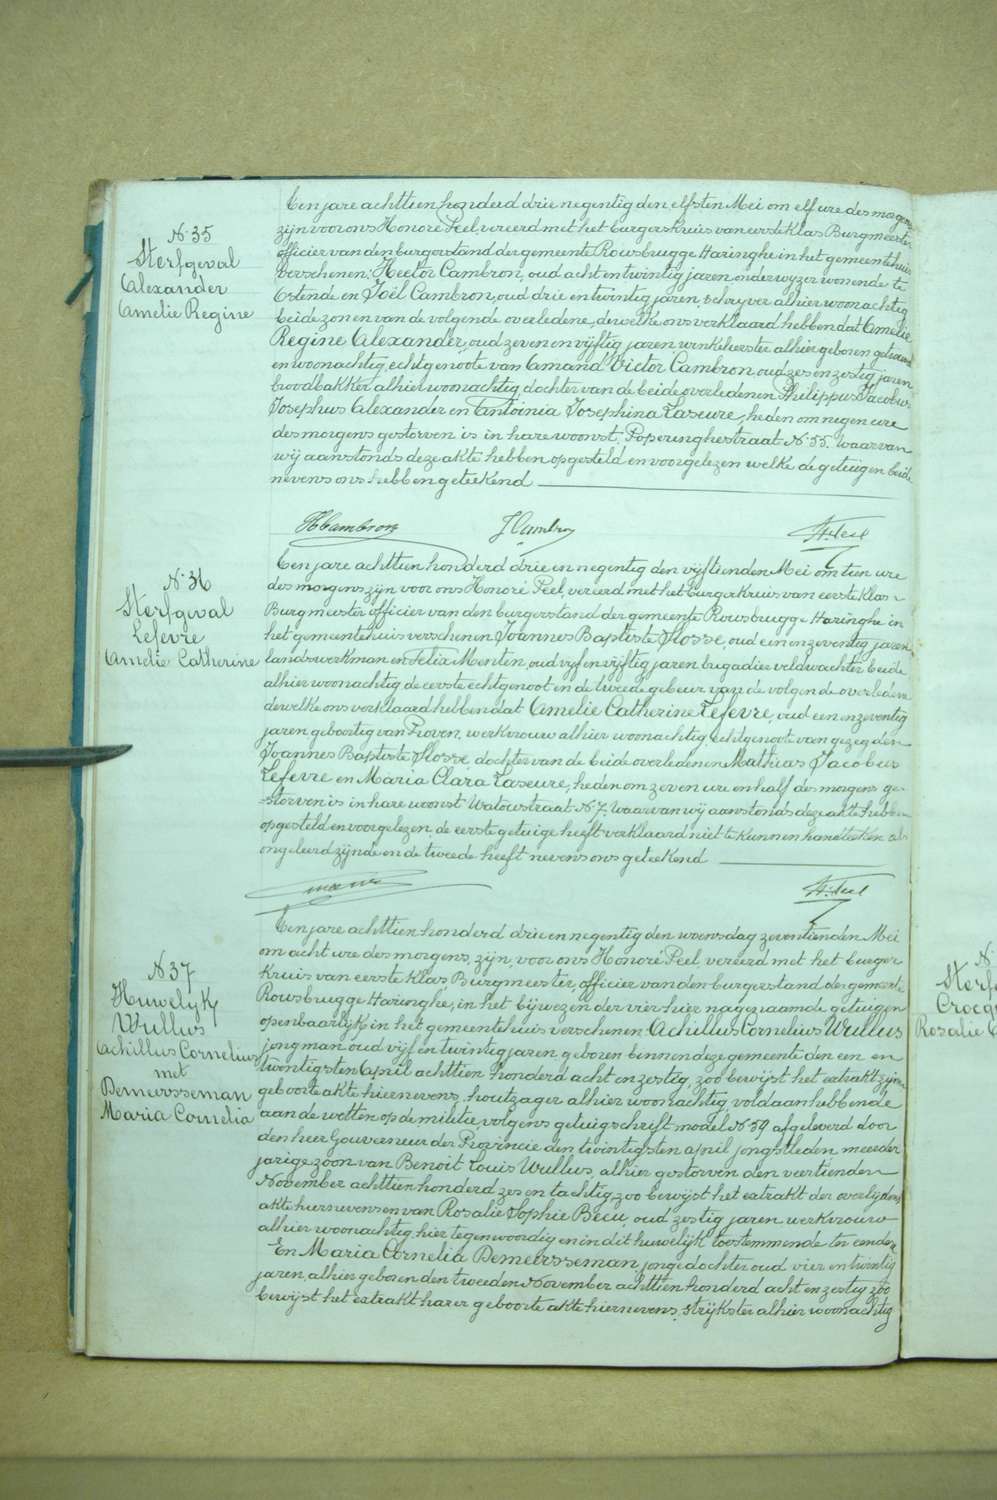 N° 35
Sterfgeval
Alexander
Amelie Regine
Een jare achttien honderd drie negentig den elfsten Mei om elf ure des morgens
zijn voor ons Honore Peel, vereerd met het burgerskruis van eerste Klas Burgmeester
officier van den burgerstand der gemeente Rousbrugge Haringhe in het gemeentehuis
verschenen, Hector Cambron, oud acht en twintig jaren onderwyzer wonende te
Ostende en Joël Cambron, oud drie en twintig jaren, schryver alhier woonachtig
beide zonen van de volgende overledene, dewelke ons verklaard hebben dat Amelie
Regine Alexander, oud zeven en vijftig jaren winkelierster alhier geboren getrouwd
en woonachtig, echtgenoote van Amand Victor Cambron, oud zes en zestig jaren
broodbakker alhier woonachtig, dochter van de beide overledenen Philippus Jacobus
Josephus Alexander en Antoinia Josephina Laseure, heden om negen ure
des morgens gestorven is in hare woonst, Poperinghestraat N° 55. Waarvan
wij aanstonds deze akte hebben opgesteld en voorgelezen welke de getuigen beide
nevens ons hebben geteekend
HCambron JCambron H. Peel
N° 36
Sterfgeval
Lefevre
Amelie Catherine
Een jare achttien honderd drie en negentig den vijftienden Mei om tien ure
des morgens zijn voor ons Honoré Peel, vereerd met het burgerkruis van eerste klas
Burgmeester officier van den burgerstand der gemeente Rousbrugge Haringhe in
het gemeentehuis verschenen Joannes Baptiste Flosse, oud een en zeventig jaren,
landswerkman en Felix Menten, oud vyf en vyftig jaren brigadier veldwachter beide
alhier woonachtig de eerste echtgenoot en de tweede gebuur van de volgende overledene
dewelke ons verklaard hebben dat Amelie Catherine Lefevre, oud een en zeventig
jaren geboortig van Proven, werkvrouw alhier woonachtig, echtgenoote van gezegden
Joannes Baptiste Flosse, dochter van de beide overledenen Mathias Jacobus
Lefevre en Maria Clara Laseure, heden om zeven ure en half des morgens ge-
-storven is in hare woonst Watoustraat N° 7. Waarvan wij aanstonds deze akte hebben
opgesteld en voorgelezen, de eerste getuige heeft verklaard niet te kunnen handteeken als
ongeleerd zijnde en de tweede heeft nevens ons geteekend
H. Peel
N° 37
Huwelijk
Wullus
Achillus Cornelius
met
Demeersseman
Maria Cornelia
Een jare achttien honderd drie en negentig den woensdag zeventienden Mei
om acht ure des morgens, zijn, voor ons Honoré Peel, vereerd met het burger
kruis van eerste klas Burgmeester, officier van den burgerstand der gemeente
Rousbrugge Haringhe, in het bijwezen der vier hier nagenaamde getuigen
openbaarlijk in het gemeentehuis verschenen Achillus Cornelius Wullus
jongman oud vijf en twintig jaren, geboren binnen deze gemeente den een en
twintigsten April achttien honderd acht en zestig, zoo bewijst het extrakt zijner
geboorte akte hiernevens, houtzager alhier woonachtig, voldaan hebbende
aan de wetten op de militie, volgens getuigschrift model N° 59 afgeleverd door
den heer Gouverneur der Provincie den twintigsten april jongstleden, meerder
jarige zoon van Benoit Louis Wullus, alhier gestorven den veertienden
November achttien honderd zes en tachtig, zoo bewijst het extrakt der overlijdens
akte hiernevens en van Rosalie Sophie Becu, oud zestig jaren werkvrouw
alhier woonachtig, hier tegenwoordig en in dit huwelijk toestemmende ter eender
En Maria Cornelia Demeersseman, jongedochter oud vier en twintig
jaren, alhier geboren den tweeden November achttien honderd acht en zestig zoo
bewijst het extrakt harer geboorte akte hiernevens, strijkster alhier woonachtig